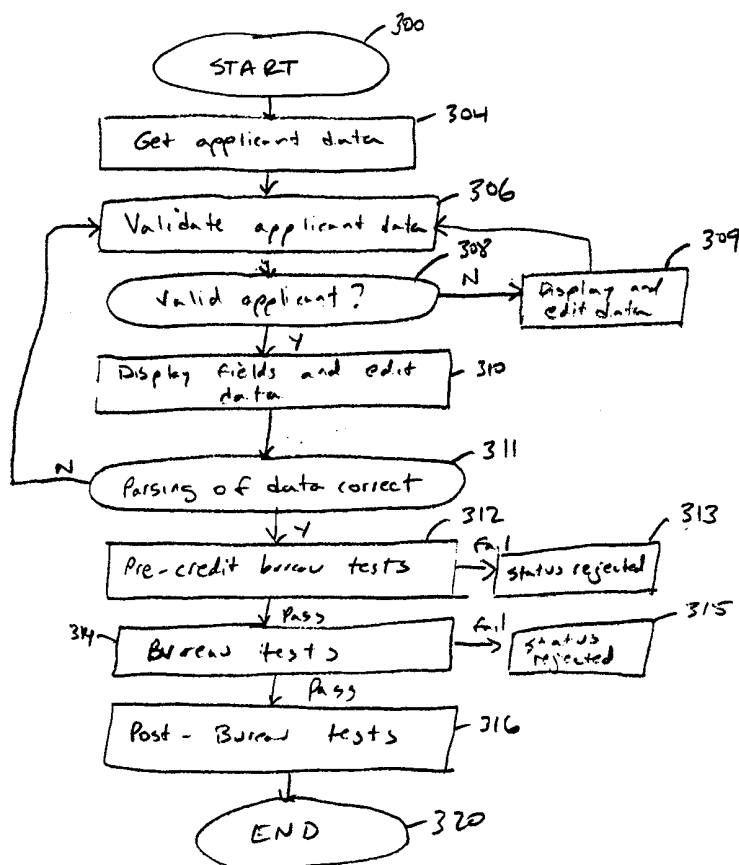 300
START
304
Get applicant data
306
Validate applicant data
308
Valid applicant?
N
309
Display and
edit data
Y
Display fields and edit
data
310
N
311
Parsing of data correct
Y
312
Pre-credit bureau tests
Fail
313
status rejected
Pass
314
Bureau tests
Fail
315
status
rejected
Pass
Post-Bureau tests
316
END
320